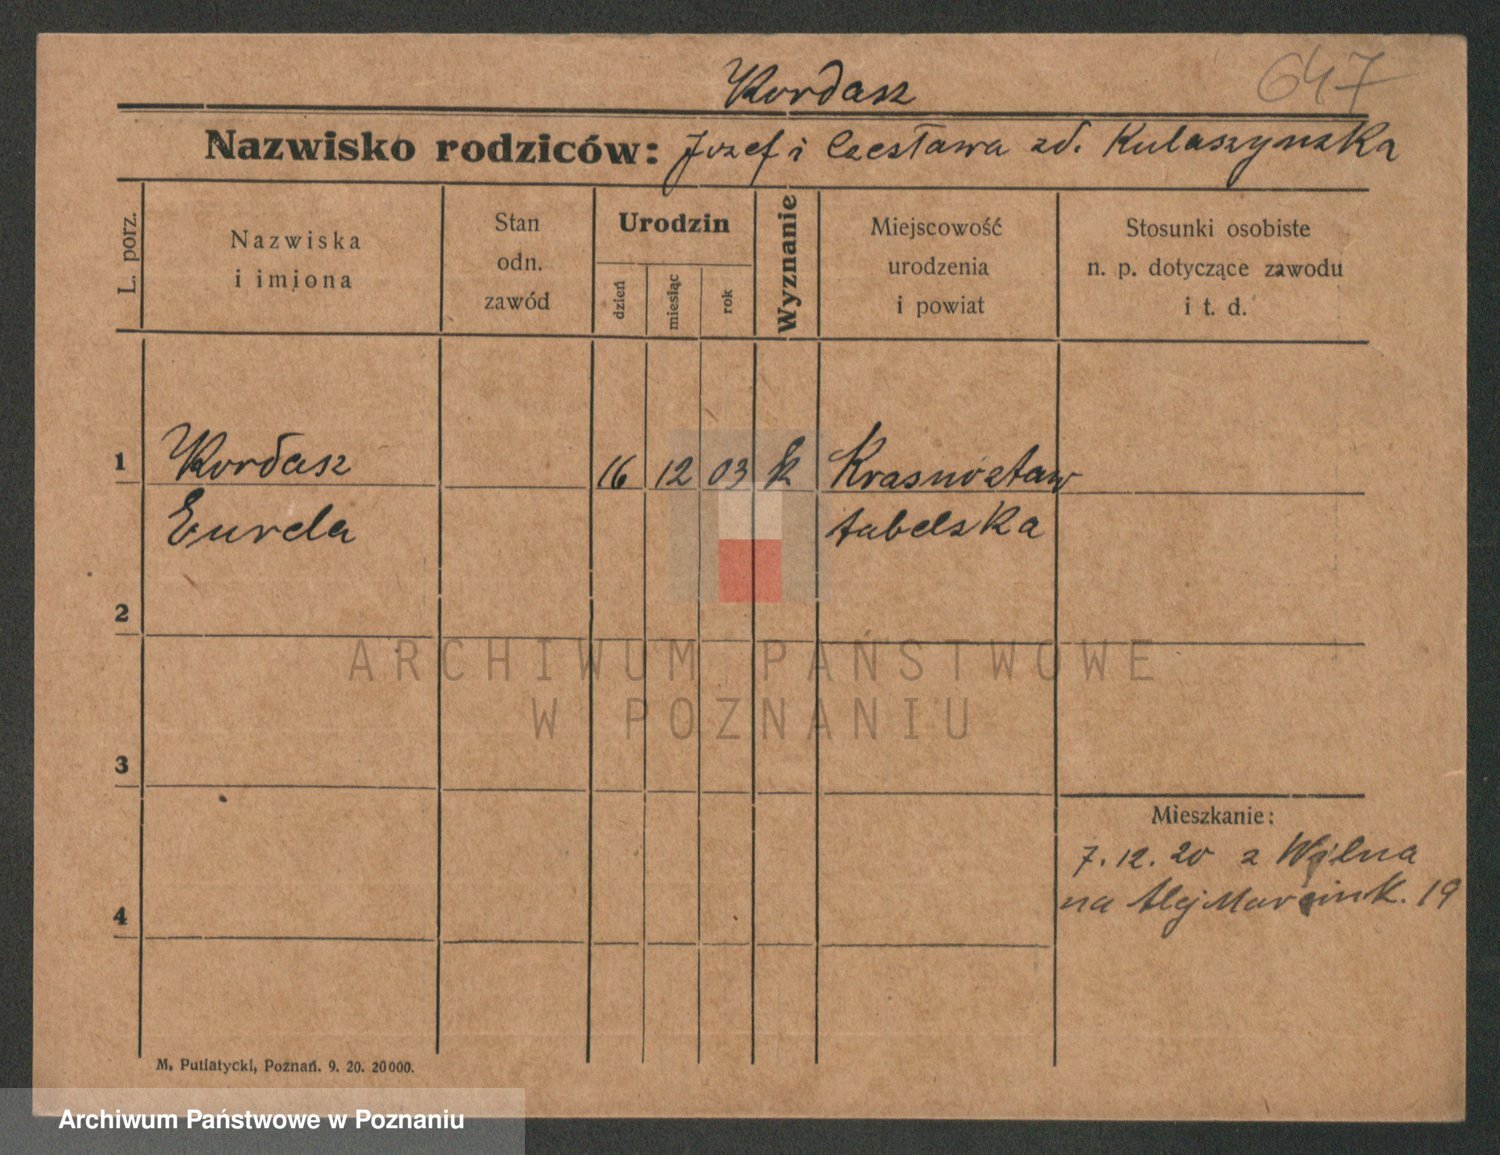 Kordasz
647
Nazwisko rodziców: Jozef i Czesława zd. Kulaszynska
L. porz.
Nazwiska
i imiona
Stan
odn.
zawód
Urodzin
dzień
miesiąc
rok
Wyznanie
Miejscowość
urodzenia
i powiat
Stosunki osobiste
n. p. dotyczące zawodu
i t. d.
1 Kordasz 16 12 03 k Krasnostaw
lubelska
2
3
Mieszkanie:
7.12.20 z Wilna
na Alej Marcink. 19
4
M. Putiatycki, Poznań. 9. 20. 20000.
ARCHIWUM PAŃSTWOWE
W POZNANIU
Archiwum Państwowe w Poznaniu